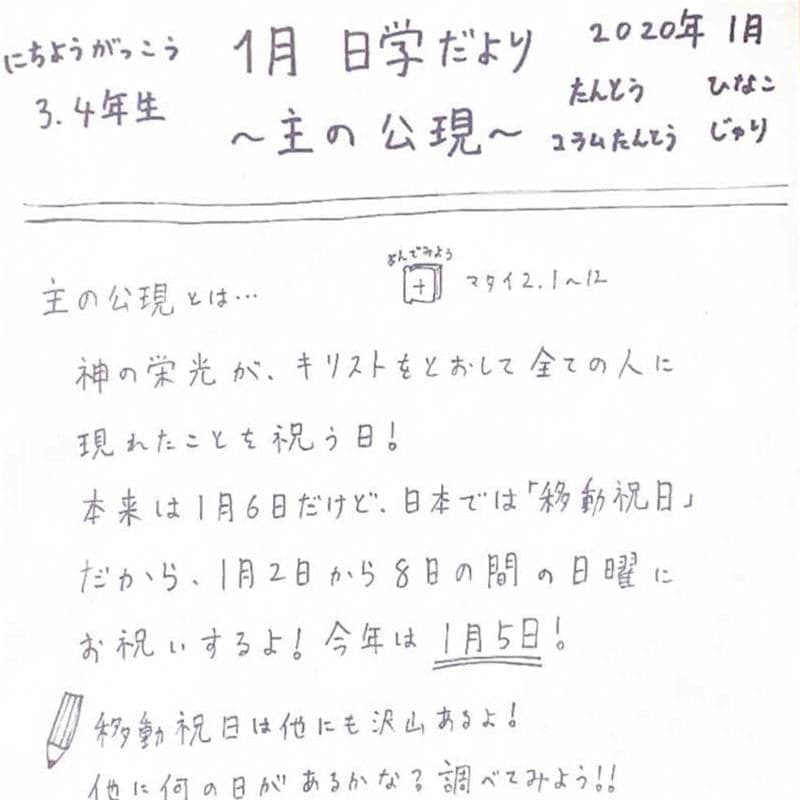 にちようがっこう
3.4年生
1月 日学だより
～主の公現～
2020年 1月
たんとう ひなこ
コラムたんとう じゅり
主の公現とは…
よんでみよう
マタイ2.1～12
神の栄光が、キリストをとおして全ての人に
現れたことを祝う日!
本来は1月6日だけど、日本では「移動祝日」
だから、1月2日から8日の間の日曜に
お祝いするよ!今年は 1月5日!
移動祝日は他にも沢山あるよ!
他に何の日があるかな?調べてみよう!!